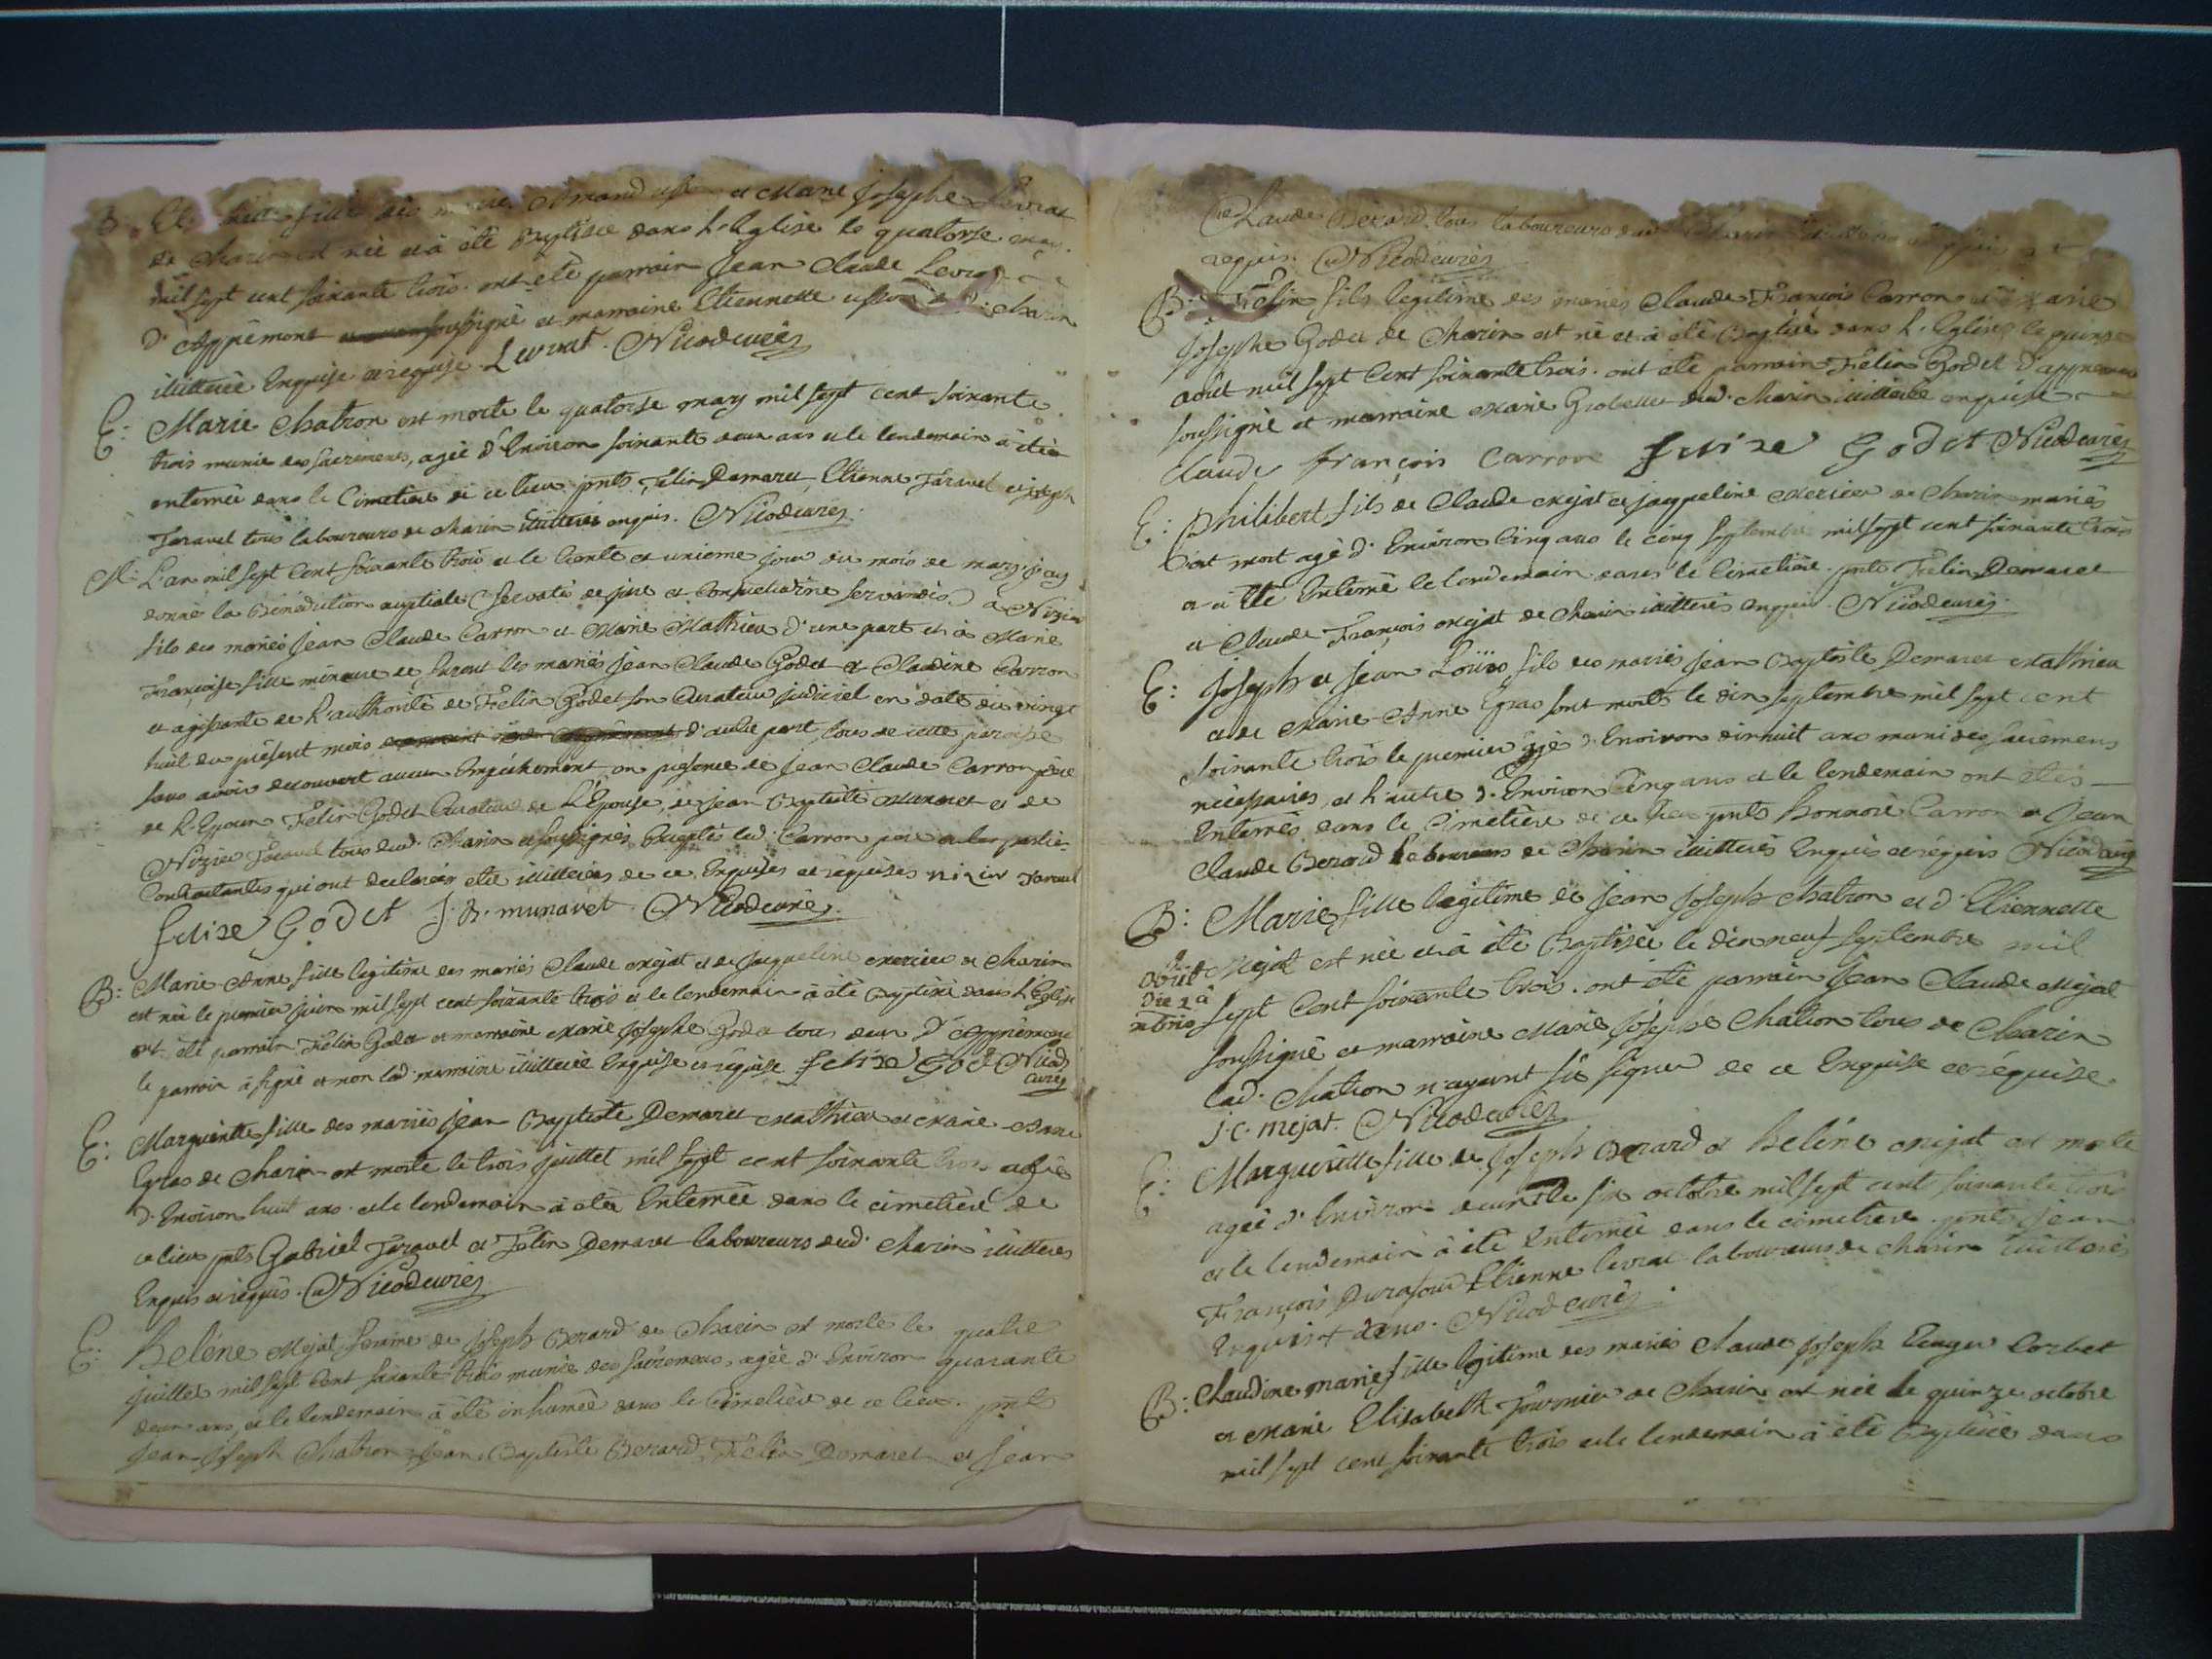 B: fille des Amand et Marie Josephe Levrat
de Charin est née et à été Baptisée dans L'Eglise le quatorse may
mil sept cent soixante trois. ont été parrain Jean Claude Levrat
d'Appremont soussigné et marraine Etiennette Charin
illitterée Enquise et requise. Levrat. Nicod curéz
E: Marie Chatron est morte le quatorse may mil sept cent soixante
trois munie des sacremens, agée d'Environ soixante deux ans et le lendemain à étée
enterrée dans le Cimetiere de ce lieu pnts Félix Demaret, Etienne Taravel et joseph
Taravel tous laboureurs de Charin illitteres enquis. Nicod curéz
M: L'an mil sept cent soixante trois et le trente et unieme jour du mois de may j'ay
donné la Bénédiction nuptiale (servatis de jure et Consuetudine servandis) à Nizier
fils des mariés Jean Claude Carron et Marie Mathieu d'une part et à Marie
Françoise fille mineure de furent les mariés Jean Claude Godet et Claudine Carron
et agissante de l'authorité de Félix Godet son Curateur judiciel en date du vingt
huit du présent mois d'autre part, tous de cette paroisse
sans avoir decouvert aucun Empéchement, en presence de Jean Claude Carron père
de l'Epoux Félix Godet Curateur de L'Epouse, de Jean Baptiste Munaret et de
Nizier Taravel tous dud. Charin et soussignés, Exceptés led. Carron pere et les parties
Contractantes qui ont declarées etre illitterées de ce Enquises et requises nizier Taravel
felize Godet J. B. munaret Nicod curéz
B: Marie Anne fille legitime des mariés Claude Mejat et de Jacqueline Mercier de Charin
est née le premier juin mil sept cent soixante trois et le lendemain à été Baptisée dans L'Eglise
ont été parrain Félix Godet et marraine Marie Josephe Godet tous deux d'Appremont
le parrain à signé et non lad. marraine illitterée Enquise et requise felize Godet Nicod
curéz
E: Marguerite fille des mariés Jean Baptiste Demaret Mathieu et Marie Anne
Gras de Charin est morte le trois juillet mil sept cent soixante trois agée
d'Environ huit ans. et le lendemain à étée Enterrée dans le cimetière de
ce lieu pnts Gabriel Taravel et Felix Demaret laboureurs dud. Charin illitteres
Enquis et requis. Nicod curéz
E: Heléne Mejat femme de Joseph Berard de Charin est morte le quatre
juillet mil sept cent soixante trois munie des sacremens, agée d'Environ quarante
deux ans, et le lendemain à été inhumée dans le Cimetière de ce lieu. pnts
Jean Joseph Chatron, Jean Baptiste Berard, Félix Demaret et Jean
Claude Bérard, tous laboureurs
requis. Nicod curéz
B: Félix fils legitime des mariés Claude François Carron et Marie
Josephe Godet de Charin est né et à été Baptisé dans L'Eglise le quinze
août mil sept Cent soixante trois. ont été parrain Félix Godet d'appremont
soussigné et marraine Marie dud. Charin illitterée enquise
claude françois carron felize Godet Nicod curéz
E: Philibert fils de Claude Mejat et jacqueline Mercier de Charin mariés
est mort agé d'Environ Cinq ans le cinq septembre mil sept cent soixante trois
et à été Enterré le lendemain dans le Cimetière. pnts Félix Demaret
et Claude François Mejat de Charin illitterés enquis. Nicod curéz
E: Joseph et Jean Louïs fils des mariés Jean Baptiste Demaret Mathieu
et de Marie Anne Gras sont morts le dix septembre mil sept cent
soixante trois le premier agé d'Environ dixhuit ans muni des sacremens
nécessaires, et l'autre d'Environ Cinq ans et le lendemain ont etés
Enterrés dans le Cimetière de ce lieu pnts honnoré Carron et Jean
Claude Berard laboureurs de Charin illitterés Enquis et requis Nicod curéz
B: Marie fille legitime de Jean Joseph Chatron et d'Etiennette
Mejat est née et à été Baptisée le dix neuf septembre mil
obiit
die 2 a
sept Cent soixante trois. ont été parrain Jean Claude Mejat
soussigné et marraine Marie Josephe Chatron tous de Charin
lad. Chatron n'ayant sçû signer de ce Enquise et réquise.
j. c. mejat. Nicod curéz
E: Marguerite fille de Joseph Berard et Heléne Mejat est morte
agée d'Environ deux le six octobre mil sept cent soixante trois
et le lendemain à été Enterrée dans le cimetiere. pnts Jean
François Durafour Etienne levrat laboureurs de Charin illitterés
Enquis + d'ans. Nicod curéz
B: Claudine marie fille legitime des mariés Claude Joseph Corbet
et Marie Elisabeth Fournier de Charin est née le quinze octobre
mil sept cent soixante trois et le lendemain à été Baptisée dans